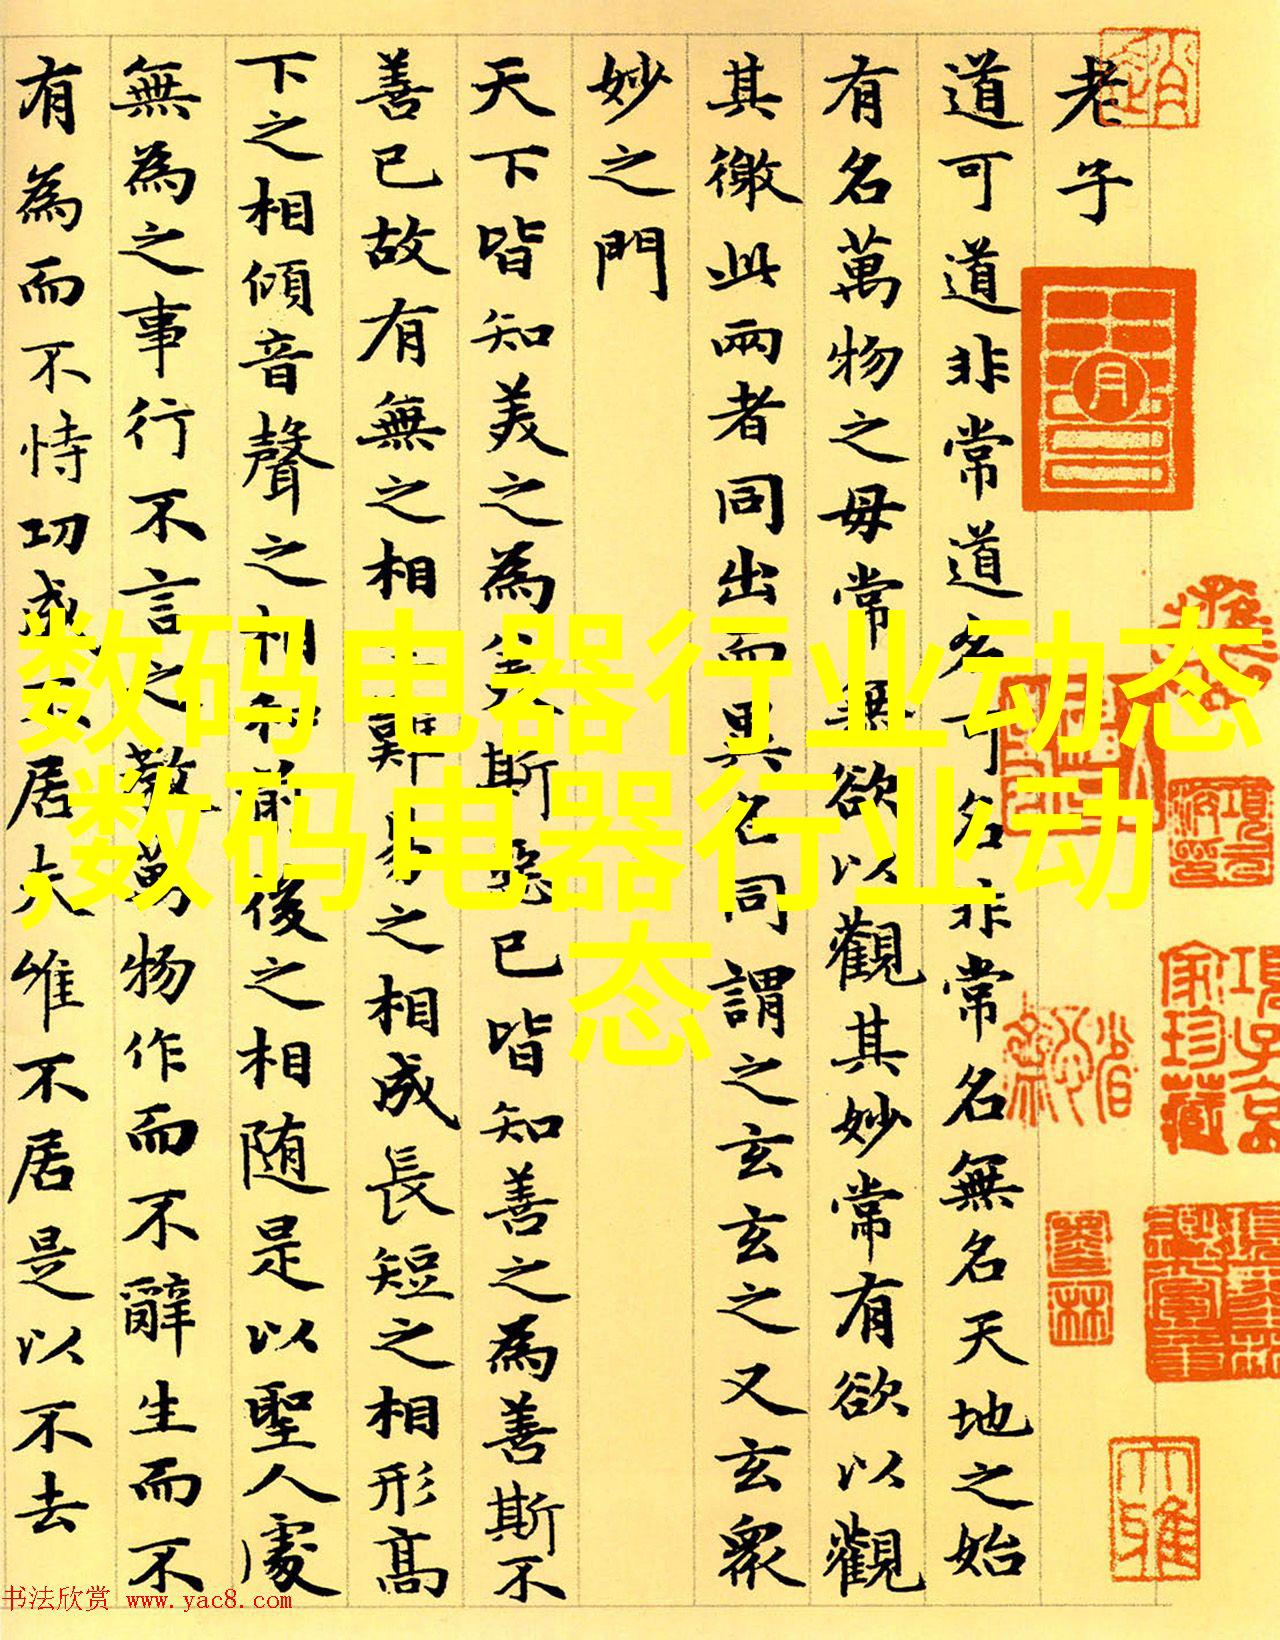 老子
道可道非常道名可名非常名無名天地之始
有名萬物之母常無欲以觀其妙常有欲以觀
其徼此兩者同出而異名同謂之玄玄之又玄衆
妙之門
天下皆知美之為美斯惡已皆知善之為善斯不
善已故有無之相生難易之相成長短之相形高
下之相傾音聲之相和前後之相随是以聖人處
無為之事行不言之教萬物作而不辭生而不
有為而不恃功成不居夫惟不居是以不去
項子京
家珍藏
数码电器行业动态
,数码电器行业动
态
书法欣赏 www.yac8.com